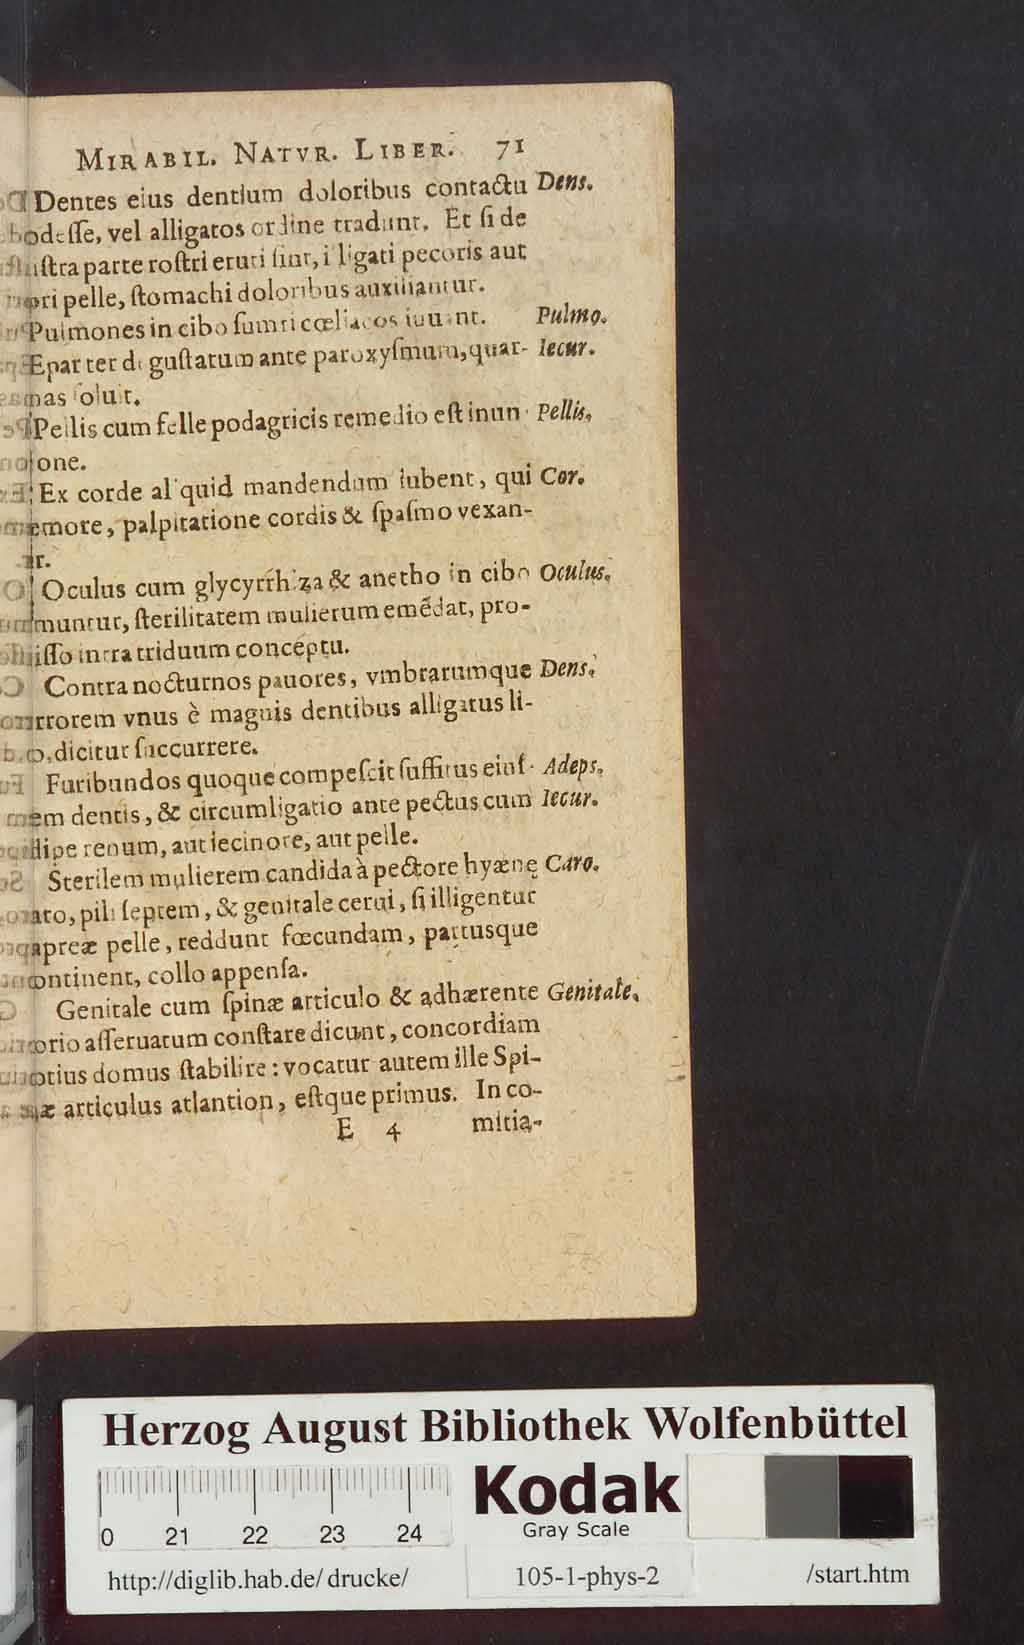 MIRABIL. NATVR. LIBER. 71
Dentes eius dentium doloribus contactu Dens.
odesse, vel alligatos ordine tradunt. Et si de
istra parte rostri eruti sint, illigati pecoris aut
pri pelle, stomachi doloribus auxiliantur.
Pulmones in cibo sumti cœliacos iuuant. Pulmo.
Epar ter degustatum ante paroxysmum, quar- Iecur.
nas soluit.
Pellis cum felle podagricis remedio est inun- Pellis,
one.
Ex corde aliquid mandendum iubent, qui Cor.
emore, palpitatione cordis & spasmo vexan-
r.
Oculus cum glycyrrhiza & anetho in cibo Oculus,
muntur, sterilitatem mulierum emēdat, pro-
isso intra triduum conceptu.
Contra nocturnos pauores, vmbrarumque Dens,
rrorem vnus è magnis dentibus alligatus li-
o, dicitur succurrere.
Furibundos quoque compescit suffitus eius- Adeps,
em dentis, & circumligatio ante pectus cum Iecur.
dipe renum, aut iecinore, aut pelle.
Sterilem mulierem candida à pectore hyænę Caro.
ato, pili septem, & genitale cerui, si illigentur
apreæ pelle, reddunt fœcundam, partusque
ontinent, collo appensa.
Genitale cum spinæ articulo & adhærente Genitale,
orio asseruatum constare dicunt, concordiam
otius domus stabilire: vocatur autem ille Spi-
æ articulus atlantion, estque primus. In co-
E 4 mitia-
Herzog August Bibliothek Wolfenbüttel
0 21 22 23 24
Kodak
Gray Scale
http://diglib.hab.de/drucke/ 105-1-phys-2 /start.htm